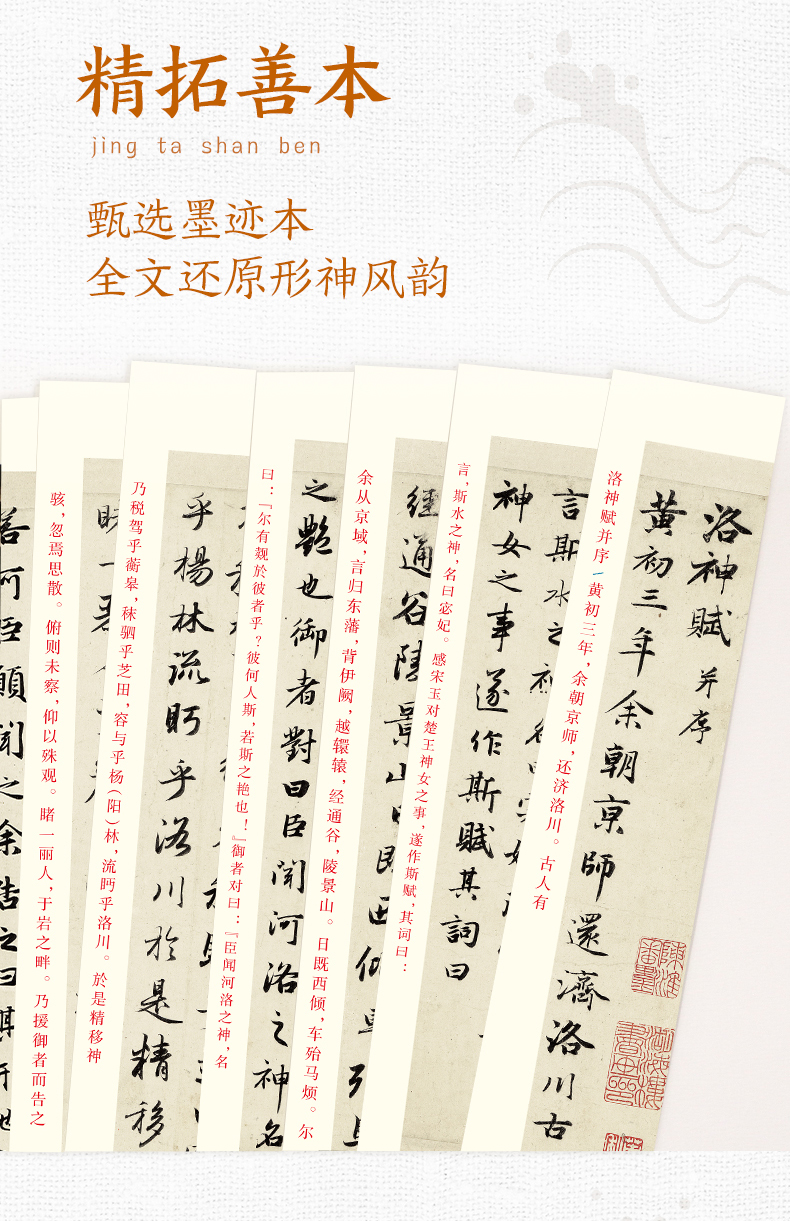 精拓善本
jìng ta shan ben
甄选墨迹本
全文还原形神风韵
洛神賦 并序
黄初三年余朝京師還濟洛川古
洛神赋并序 黄初三年，余朝京师，还济洛川。古人有
言斯水之神名曰宓妃
神女之事遂作斯賦其詞曰
言，斯水之神，名曰宓妃。感宋玉对楚王神女之事，遂作斯赋，其词曰：
經通谷陵景山日既西傾車殆馬
余从京域，言归东藩，背伊阙，越轘辕，经通谷，陵景山。日既西倾，车殆马烦。尔
之艷也御者對曰臣聞河洛之神名
曰：『尔有觌於彼者乎？彼何人斯，若斯之艳也！』御者对曰：『臣闻河洛之神，名
乎楊林流眄乎洛川於是精移
乃税驾乎蘅皋，秣驷乎芝田，容与乎杨（阳）林，流眄乎洛川。於是精移神
睹一麗
骇，忽焉思散。俯则未察，仰以殊观。睹一丽人，于岩之畔。乃援御者而告之
若何臣願聞之余告之曰其形也